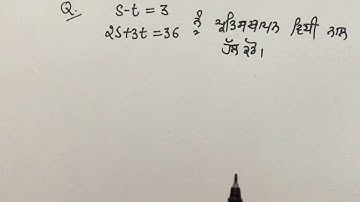 Q. s-t = 3
2s+3t=36 ਨੂੰ ਪ੍ਰਤਿਸਥਾਪਨ ਵਿਧੀ ਨਾਲ
ਹੱਲ ਕਰੋ।